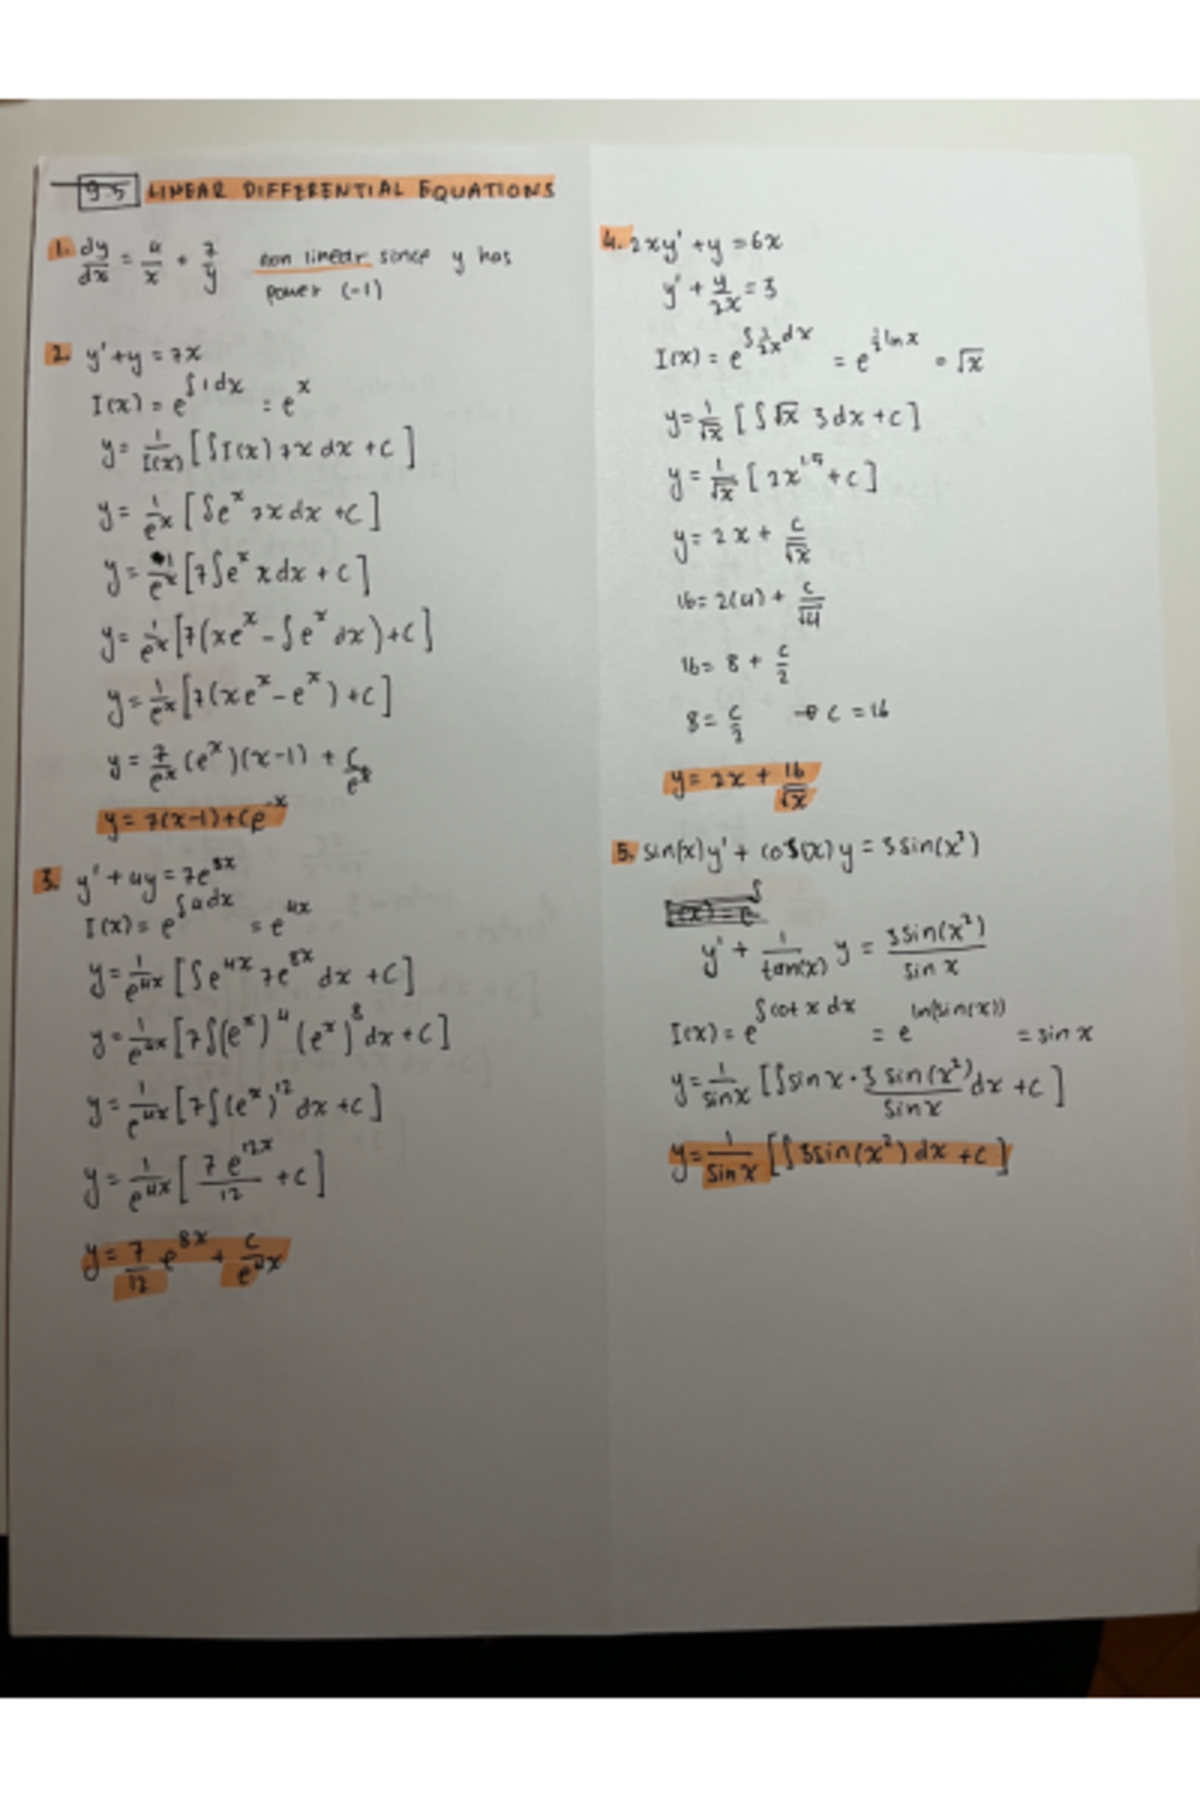 9.5 LINEAR DIFFERENTIAL EQUATIONS
1. dy/dx = 4/x + 7/y non linear since y has
power (-1)
2. y' + y = 7x
I(x) = e^∫1dx = e^x
y = 1/I(x) [∫I(x) 7x dx + C]
y = 1/e^x [∫e^x 7x dx + C]
y = 1/e^x [7∫e^x x dx + C]
y = 1/e^x [7(xe^x - ∫e^x dx) + C]
y = 1/e^x [7(xe^x - e^x) + C]
y = 7/e^x (e^x)(x-1) + C/e^x
y = 7(x-1) + Ce^-x
3. y' + 4y = 7e^8x
I(x) = e^∫4dx = e^4x
y = 1/e^4x [∫e^4x 7e^8x dx + C]
y = 1/e^4x [7∫(e^x)^4 (e^x)^8 dx + C]
y = 1/e^4x [7∫(e^x)^12 dx + C]
y = 1/e^4x [7e^12x/12 + C]
y = 7/12 e^8x + C/e^4x
4. 2xy' + y = 6x
y' + y/2x = 3
I(x) = e^∫1/2x dx = e^½ ln x = √x
y = 1/√x [∫√x 3dx + C]
y = 1/√x [2x^1.5 + C]
y = 2x + C/√x
16 = 2(4) + C/√4
16 = 8 + C/2
8 = C/2 → C = 16
y = 2x + 16/√x
5. sin(x)y' + cos(x)y = 3sin(x²)
y' + 1/tan(x) y = 3sin(x²)/sin x
I(x) = e^∫cot x dx = e^ln(sin(x)) = sin x
y = 1/sinx [∫sin x · 3 sin(x²)/sin x dx + C]
y = 1/sin x [∫3sin(x²) dx + C]